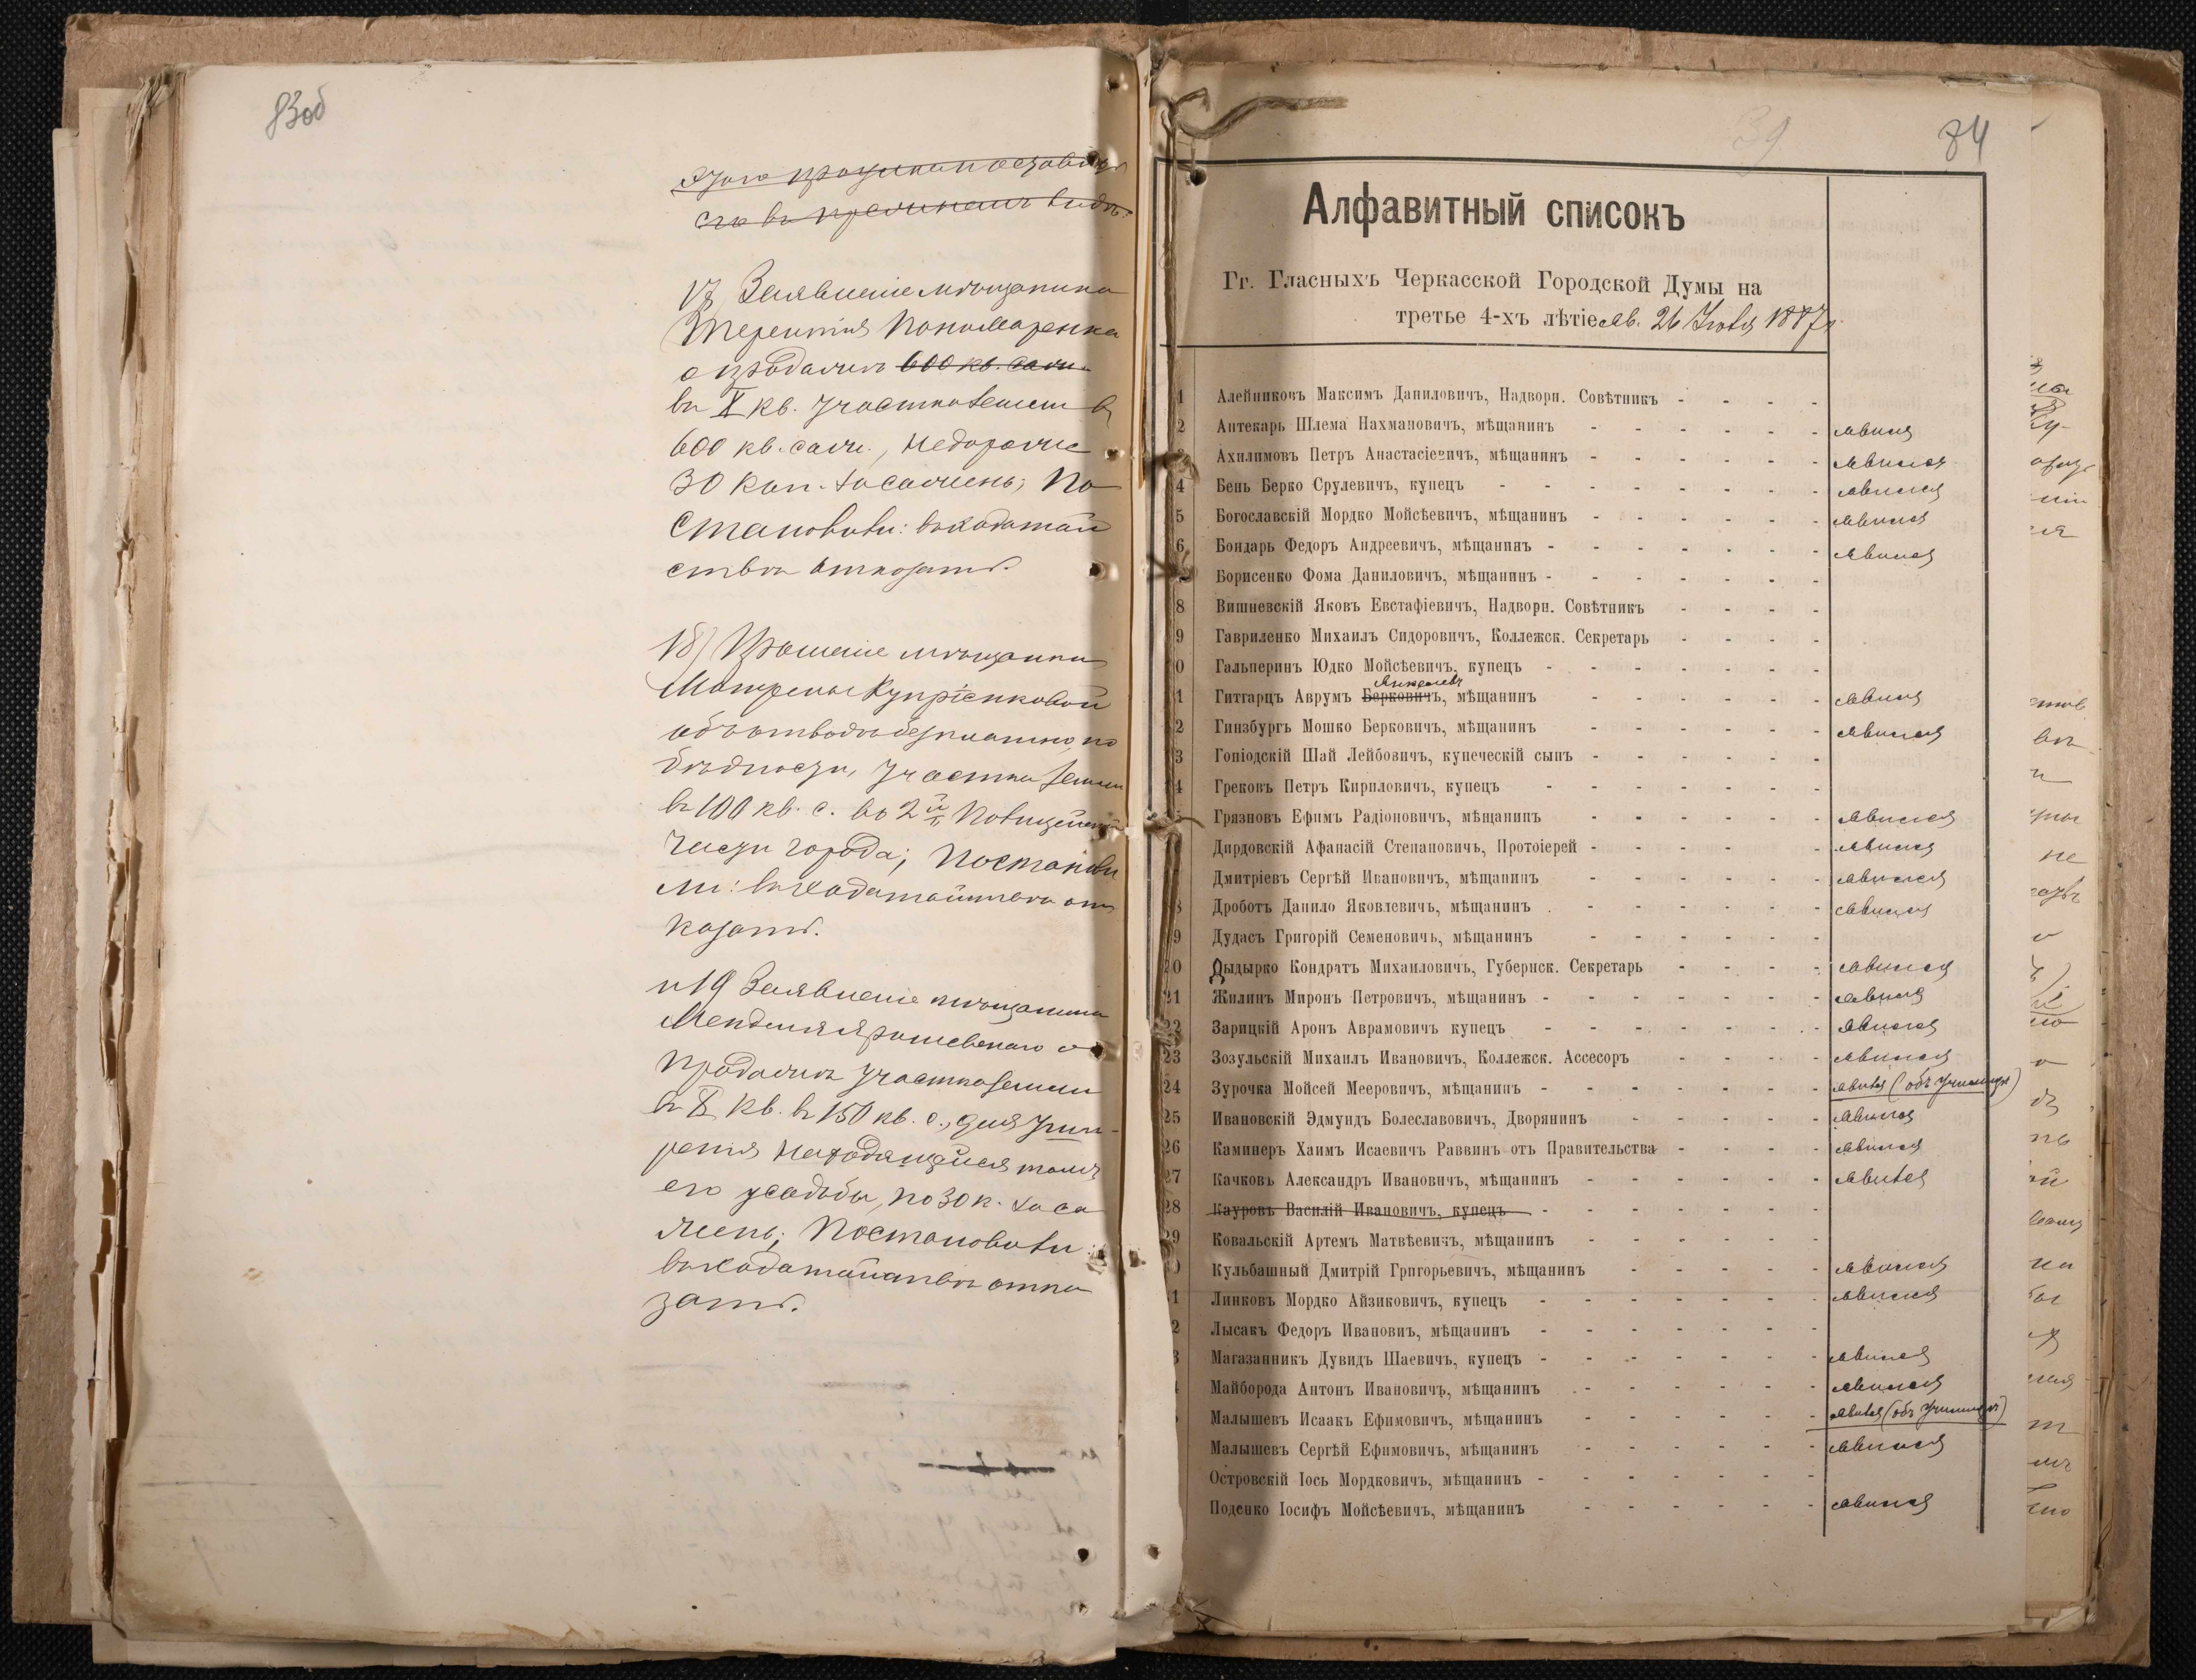 83об
сга въ прежнемъ видѣ.
17) Заявленіе мѣщанина
Терентія Пономаренка
о продажѣ 600 кв. саж.
въ X кв. участка земли въ
600 кв. саж., недороже
30 коп. за сажень; По
становили: въ ходатай
ствѣ отказать.
18) Прошеніе мѣщанки
Матрены Купріенковой
объ отводѣ безплатно, по
бѣдности, участка земли
въ 100 кв. с. во 2й
части города; Постанови
ли: въ ходатайствѣ от
казать.
и 19 Заявленіе мѣщанина
Менделя Ярошевскаго о
продажѣ участка земли
въ X кв. въ 150 кв. с., для
ренія находящейся тамъ
его усадьбы, по 30 к. за са
жень; Постановили:
въ ходатайствѣ отка
зать.
39
84
Алфавитный списокъ
Гг. Гласныхъ Черкасской Городской Думы на
третье 4-хъ лѣтіе яв. 26 1887 г.
1 Алейниковъ Максимъ Даниловичъ, Надворн. Совѣтникъ - - - -
2 Аптекарь Шлема Нахмановичъ, мѣщанинъ - - - - - - явился
Ахилимовъ Петръ Анастасіевичъ, мѣщанинъ - - - - - - явился
4 Бень Берко Срулевичъ, купецъ - - - - - - - - явился
5 Богославскій Мордко Мойсѣевичъ, мѣщанинъ - - - - - - явился
6 Бондарь Федоръ Андреевичъ, мѣщанинъ - - - - - - - явился
Борисенко Фома Даниловичъ, мѣщанинъ - - - - - - -
8 Вишневскій Яковъ Евстафіевичъ, Надворн. Совѣтникъ - - - -
9 Гавриленко Михаилъ Сидоровичъ, Коллежск. Секретарь - - - -
0 Гальперинъ Юдко Мойсѣевичъ, купецъ - - - - - - -
1 Гитгарцъ Аврумъ Берковичъ, мѣщанинъ - - - - - - явился
2 Гинзбургъ Мошко Берковичъ, мѣщанинъ - - - - - - явился
3 Гоніодскій Шай Лейбовичъ, купеческій сынъ - - - - - -
4 Грековъ Петръ Кирилловичъ, купецъ - - - - - - -
5 Грязновъ Ефимъ Радіоновичъ, мѣщанинъ - - - - - - явился
Дирдовскій Афанасій Степановичъ, Протоіерей - - - - - - явился
Дмитріевъ Сергѣй Ивановичъ, мѣщанинъ - - - - - - явился
8 Дроботъ Данило Яковлевичъ, мѣщанинъ - - - - - - явился
9 Дудасъ Григорій Семеновичь, мѣщанинъ - - - - - -
20 Дыдырко Кондратъ Михаиловичъ, Губернск. Секретарь - - - - явился
21 Жилинъ Миронъ Петровичъ, мѣщанинъ - - - - - - - явился
22 Зарицкій Аронъ Аврамовичъ купецъ - - - - - - - явился
23 Зозульскій Михаилъ Ивановичъ, Коллежск. Ассесоръ - - - - явился
24 Зурочка Мойсей Мееровичъ, мѣщанинъ - - - - - - - явился (объ училищѣ)
25 Ивановскій Эдмундъ Болеславовичъ, Дворянинъ - - - - - явился
26 Каминеръ Хаимъ Исаевичъ Раввинъ отъ Правительства - - - - явился
27 Качковъ Александръ Ивановичъ, мѣщанинъ - - - - - - явился
28 Кауровъ Василій Ивановичъ, купецъ - - - - - - -
29 Ковальскій Артемъ Матвѣевичъ, мѣщанинъ - - - - - -
0 Кульбашный Дмитрій Григорьевичъ, мѣщанинъ - - - - - явился
1 Линковъ Мордко Айзиковичъ, купецъ - - - - - - - явился
2 Лысакъ Федоръ Иванович, мѣщанинъ - - - - - - -
3 Магазанникъ Дувидъ Шаевичъ, купецъ - - - - - - - явился
Майборода Антонъ Ивановичъ, мѣщанинъ - - - - - - явился
Малышевъ Исаакъ Ефимовичъ, мѣщанинъ - - - - - - явился (объ училищѣ)
Малышевъ Сергѣй Ефимовичъ, мѣщанинъ - - - - - - явился
Островскій Іось Мордковичъ, мѣщанинъ - - - - - - -
Поденко Іосифъ Мойсѣевичъ, мѣщанинъ - - - - - - явился